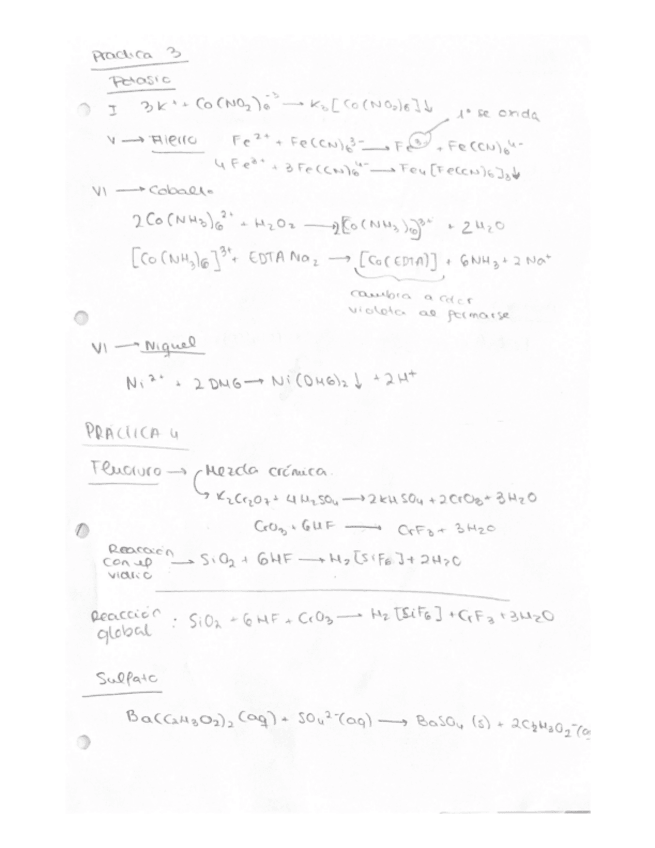 Practica 3
Potasio
I 3K⁺ + Co(NO₂)₆⁻³ → K₃[Co(NO₂)₆]↓
1° se oxida
V → Hierro Fe²⁺ + Fe(CN)₆³⁻ → Fe³⁺ + Fe(CN)₆⁴⁻
4Fe³⁺ + 3Fe(CN)₆⁴⁻ → Fe₄[Fe(CN)₆]₃↓
VI → Cobalto
2Co(NH₃)₆²⁺ + H₂O₂ → 2[Co(NH₃)₆]³⁺ + 2H₂O
[Co(NH₃)₆]³⁺ + EDTA Na₂ → [Co(EDTA)] + 6NH₃ + 2Na⁺
cambia a color
violeta al formarse
VI → Niquel
Ni²⁺ + 2DMG → Ni(DMG)₂↓ + 2H⁺
PRACTICA 4
Fluoruro → Mezcla crómica.
K₂Cr₂O₇ + 4H₂SO₄ → 2KHSO₄ + 2CrO₃ + 3H₂O
CrO₃ + 6HF → CrF₃ + 3H₂O
Reacción
con el
vidrio → SiO₂ + 6HF → H₂[SiF₆] + 2H₂O
Reacción
global : SiO₂ + 6HF + CrO₃ → H₂[SiF₆] + CrF₃ + 3H₂O
Sulfato
Ba(C₂H₃O₂)₂ (aq) + SO₄²⁻ (aq) → BaSO₄ (s) + 2C₂H₃O₂⁻ (a